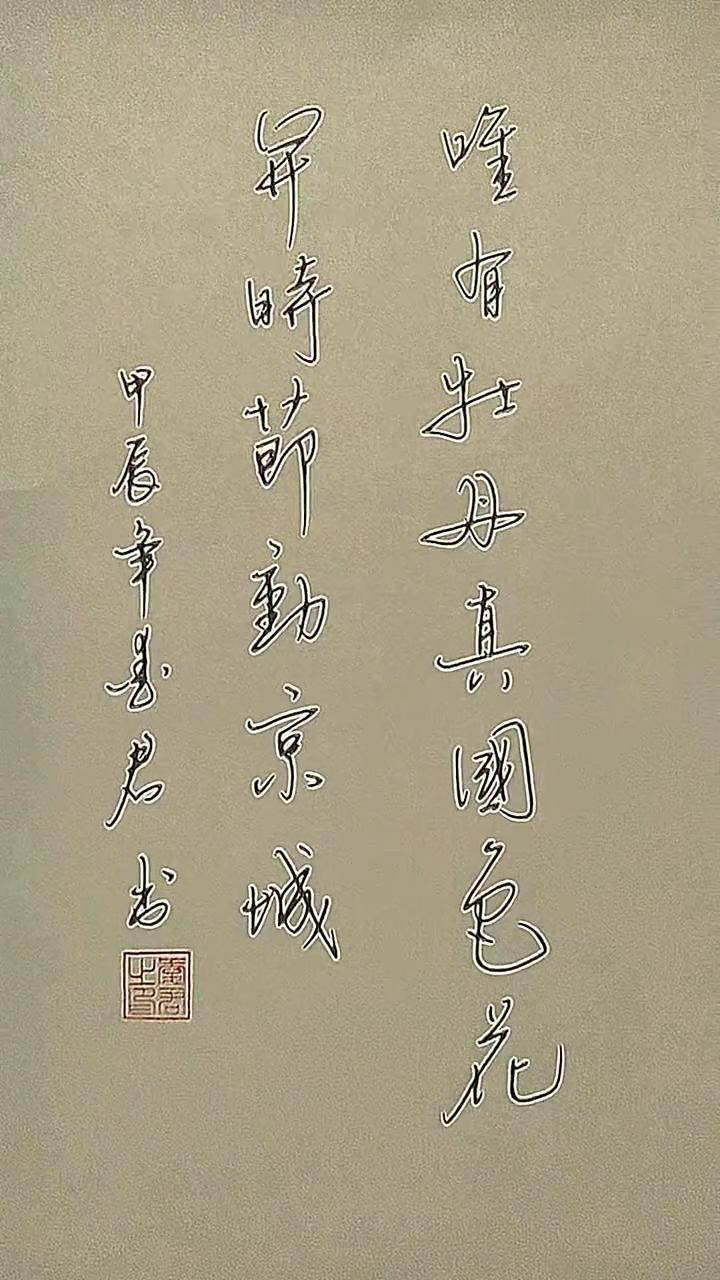 唯有牡丹真國色花
開時節動京城
甲辰年 君书
君之印